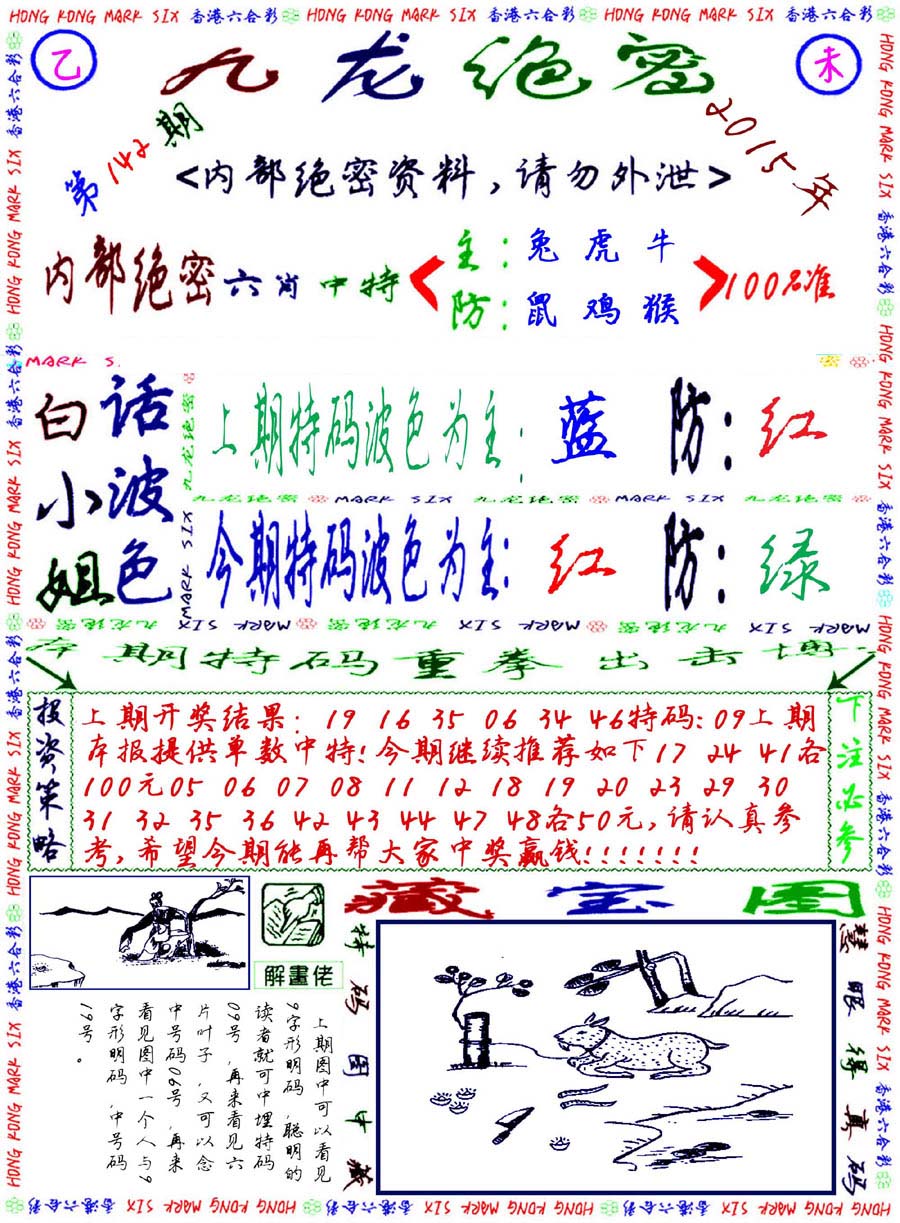 HONG KONG MARK SIX 香港六合彩 HONG KONG MARK SIX 香港六合彩 HONG KONG MARK SIX 香港六合彩
乙
九龙绝密
未
第142期
2015年
<内部绝密资料,请勿外泄>
内部绝密六肖中特
主:兔虎牛
防:鼠鸡猴
100%准
MARK S.
白话
小波
姐色
上期特码波色为主:蓝 防:红
九龙绝密 MARK SIX 九龙绝密 MARK SIX 九龙绝密
今期特码波色为主:红 防:绿
九龙绝密 MARK SIX
九龙绝密 MARK SIX 九龙绝密 MARK SIX 九龙绝密 MARK SIX
本期特码重拳出击博
投资策略
上期开奖结果: 19 16 35 06 34 46特码:09上期
本报提供单数中特!今期继续推荐如下17 24 41各
100元05 06 07 08 11 12 18 19 20 23 29 30
31 32 35 36 42 43 44 47 48各50元,请认真参
考,希望今期能再帮大家中奖赢钱!!!!!!!
下注必参
藏宝图
解畫佬
特码图中藏
慧眼得真码
上期图中可以看见
9字形明码,聪明的
读者就可中埋特码
09号,再来看见六
片叶子,又可以念
中号码06号,再来
看见图中一个人与9
字形明码,中号码
19号。
HONG KONG MARK SIX 香港六合彩 HONG KONG MARK SIX 香港六合彩 HONG KONG MARK SIX 香港六合彩